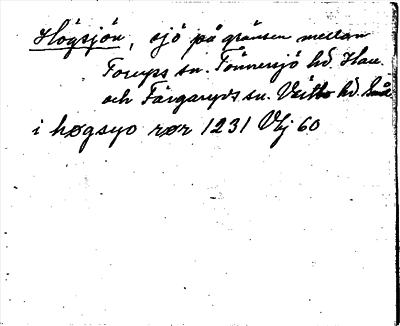 Högsjön, sjö på gränsen mellan
Torups sn. Tönnersjö hd. Hall.
och Färgaryds sn. Västbo hd. Små.
i høgsyo rør 1231 Vhj 60